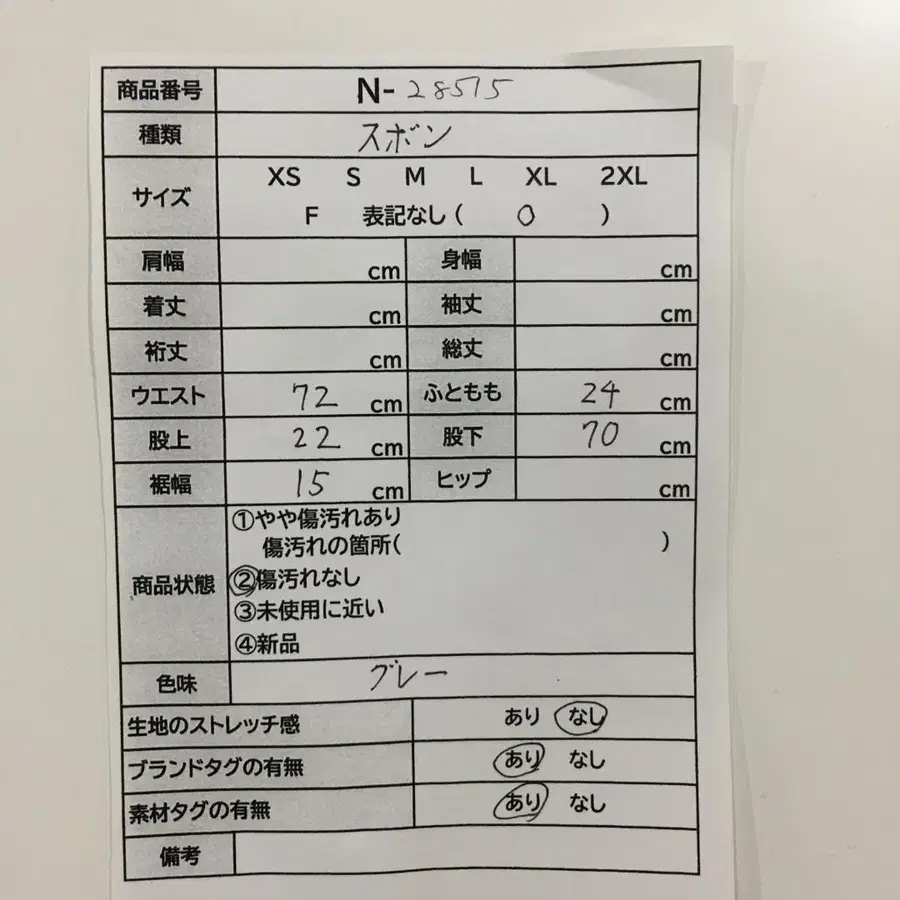 商品番号 N-28515
種類 スボン
サイズ XS S M L XL 2XL
F 表記なし ( 0 )
肩幅 cm 身幅 cm
着丈 cm 袖丈 cm
裄丈 cm 総丈 cm
ウエスト 72 cm ふともも 24 cm
股上 22 cm 股下 70 cm
裾幅 15 cm ヒップ cm
商品状態 ①やや傷汚れあり
傷汚れの箇所( )
②傷汚れなし
③未使用に近い
④新品
色味 グレー
生地のストレッチ感 あり なし
ブランドタグの有無 あり なし
素材タグの有無 あり なし
備考